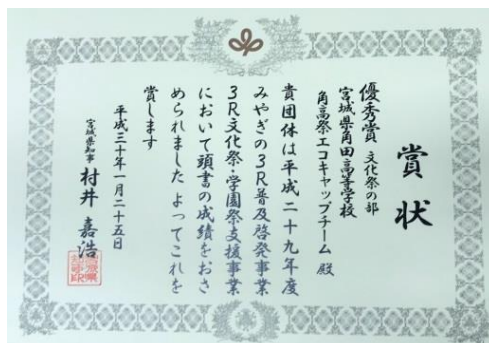 賞状
優秀賞 文化祭の部
宮城県角田高等学校
角高祭エコキャップチーム 殿
貴団体は平成二十九年度
みやぎの3R普及啓発事業
3R文化祭・学園祭支援事業
において頭書の成績をおさ
められました よってこれを
賞します
平成三十年一月二十五日
宮城県知事 村井 嘉浩